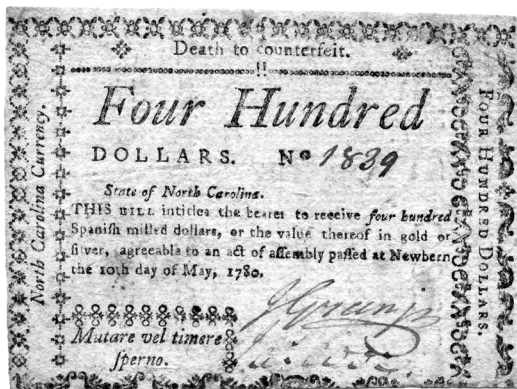 Death to counterfeit.
Four Hundred
DOLLARS. No 1839
State of North Carolina.
THIS BILL intitles the bearer to receive four hundred
Spanish milled dollars, or the value thereof in gold or
silver, agreeable to an act of assembly passed at Newbern
the 10th day of May, 1780.
Mutare vel timere
sperno.
North Carolina Currency.
FOUR HUNDRED DOLLARS.